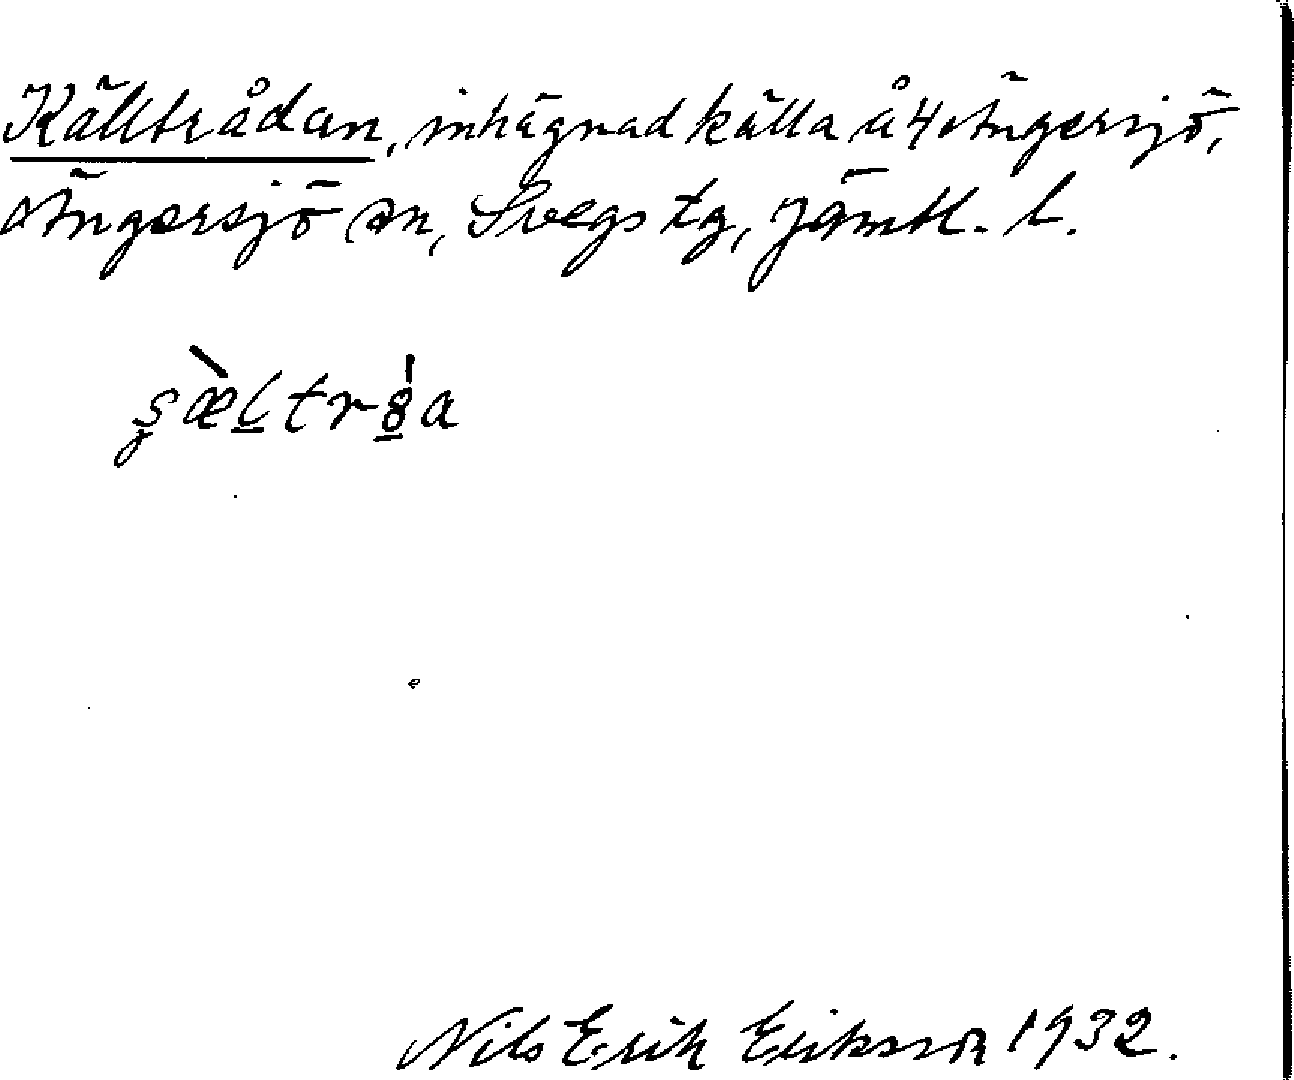 Källtrådan, inhägnad källa å 4 Ängersjö,
Ängersjö sn, Svegs tg, Jämtl. l.
ʂæ̀ltrȣ́a
Nils Erik Eriksson 1932.